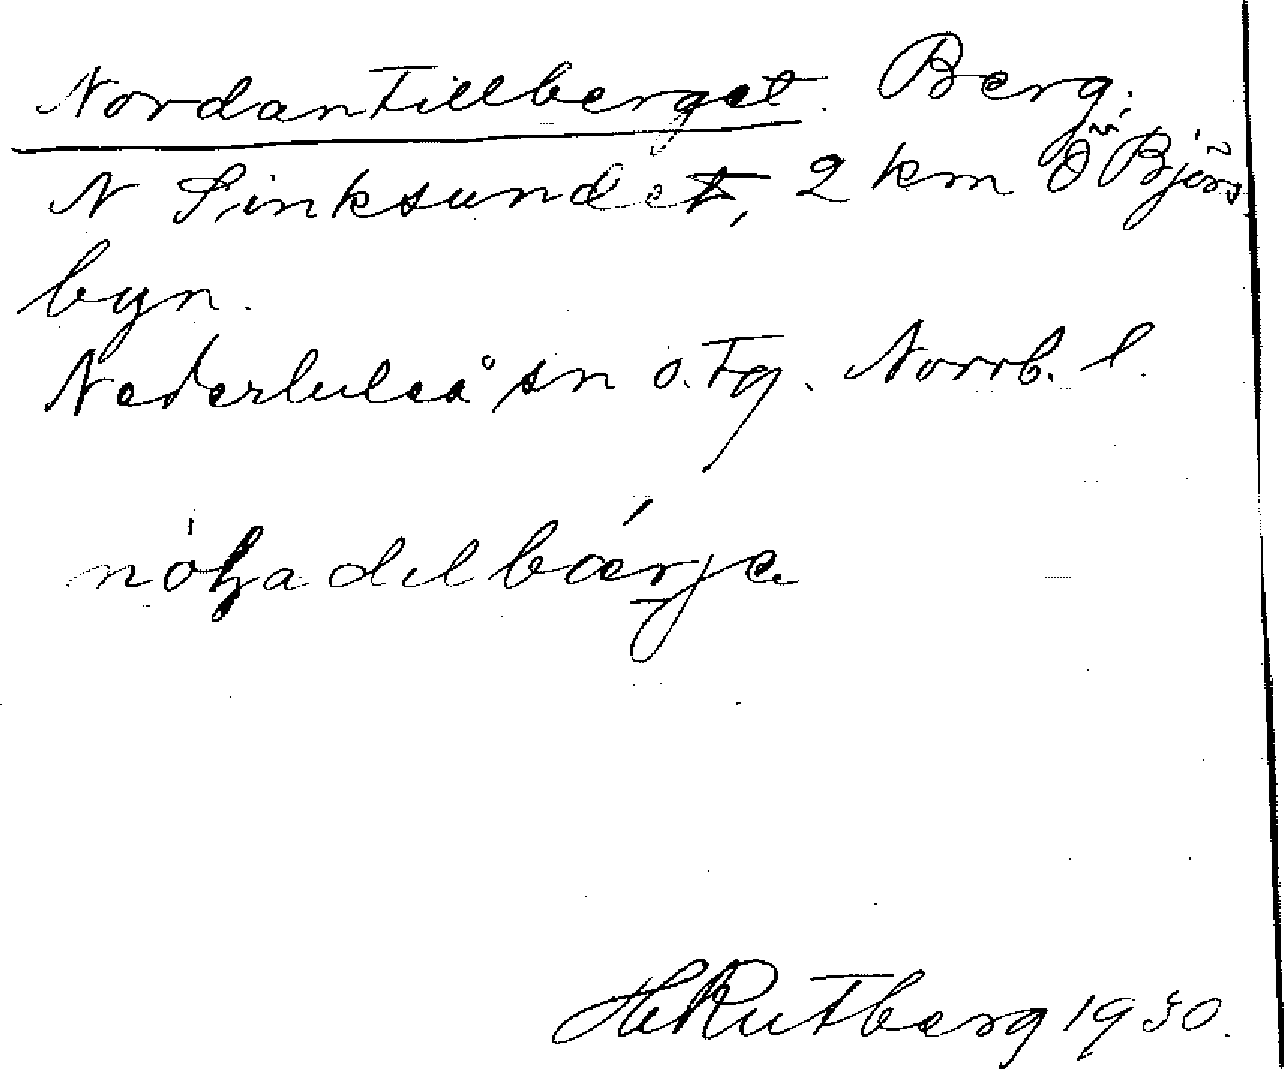 Nordantillberget. Berg.
N Sinksundet, 2 km Ö Björs
byn.
Nederluleå sn o. tg. Norrb. l.
Rutberg 1930.